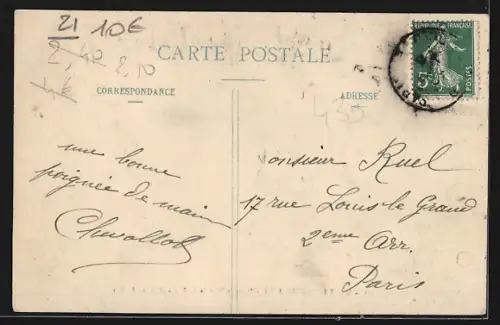 21 10€
2,40 2,10
CARTE POSTALE
CORRESPONDANCE
ADRESSE
435
RÉPUBLIQUE FRANÇAISE
5c
POSTES
une bonne
poignée de main
Monsieur Ruel
17 rue Louis le Grand
2eme Arr.
Paris